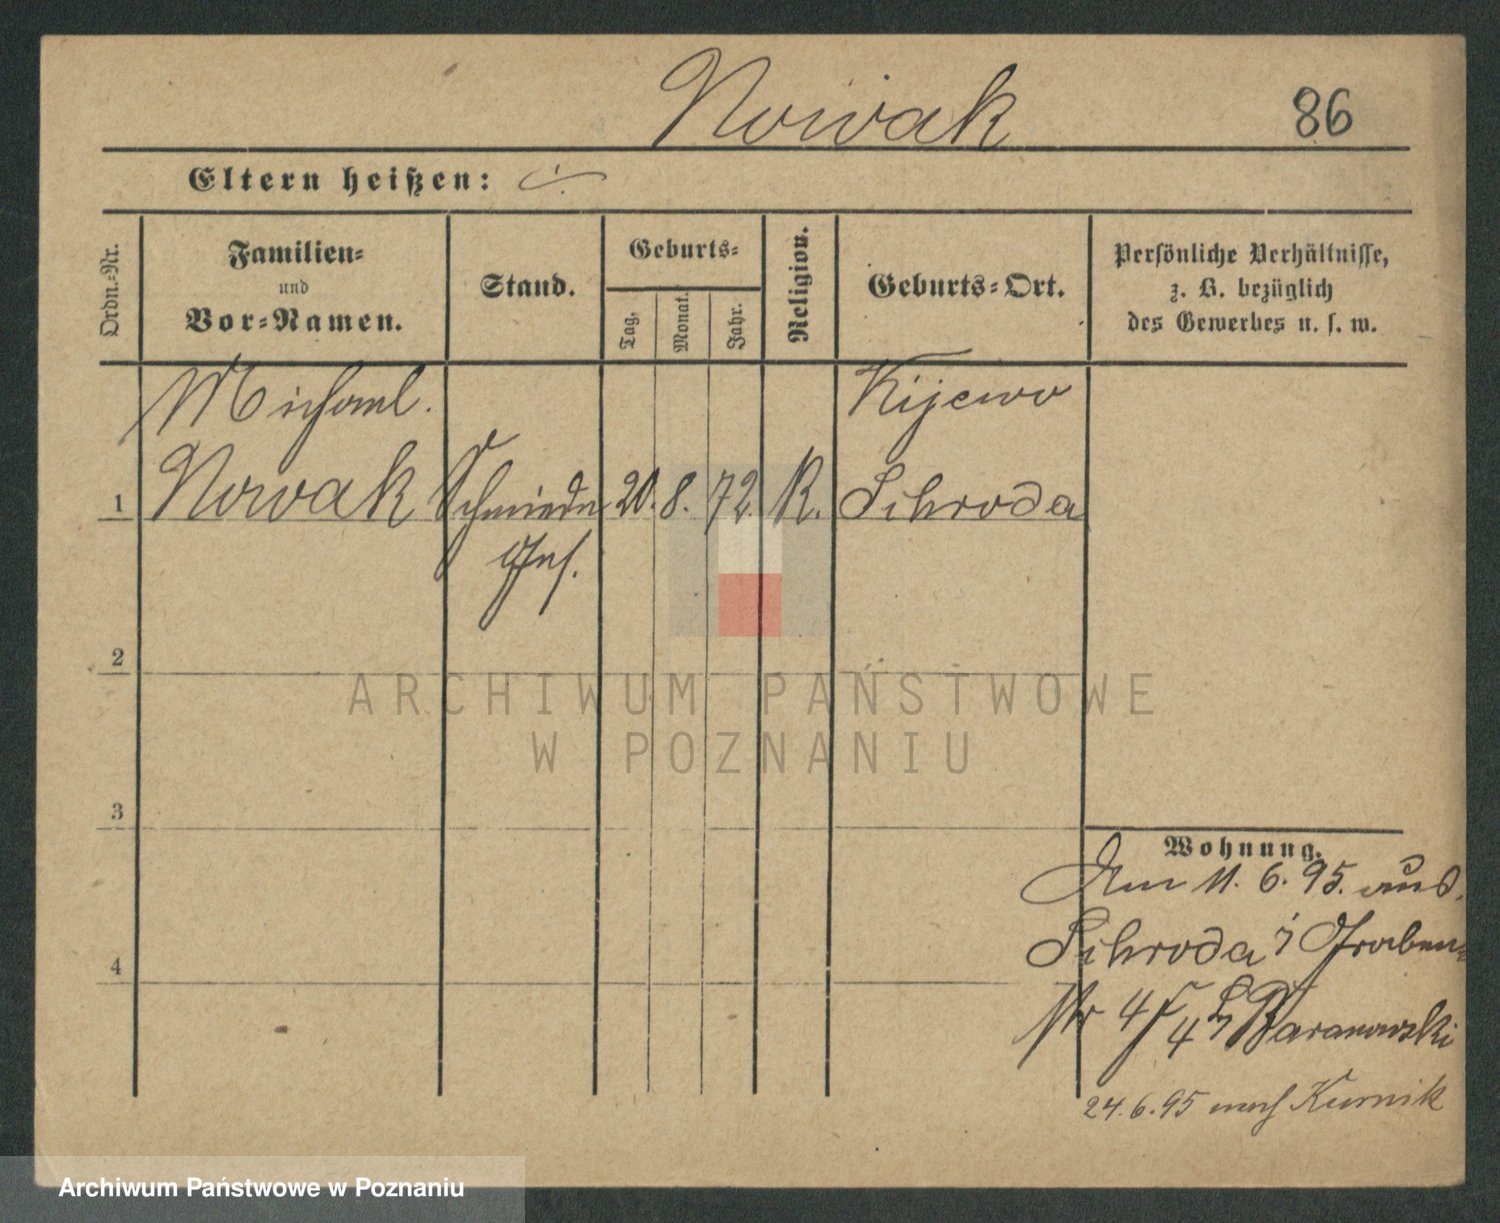 Nowak 86
Eltern heißen: ·/.
Ordn.-Nr.
Familien-
und
Vor-Namen.
Stand.
Geburts-
Tag.
Monat.
Jahr.
Religion.
Geburts-Ort.
Persönliche Verhältnisse,
z. B. bezüglich
des Gewerbes u. s. w.
Michael. Kijewo
1 Nowak Schmiede 20. 8. 72. R. Schroda
Ges.
2
ARCHIWUM PAŃSTWOWE
W POZNANIU
3
Wohnung.
Am 11. 6. 95. aus
Schroda Graben-
str 4 Baranowski
4
24.6.95 nach Kurnik
Archiwum Państwowe w Poznaniu